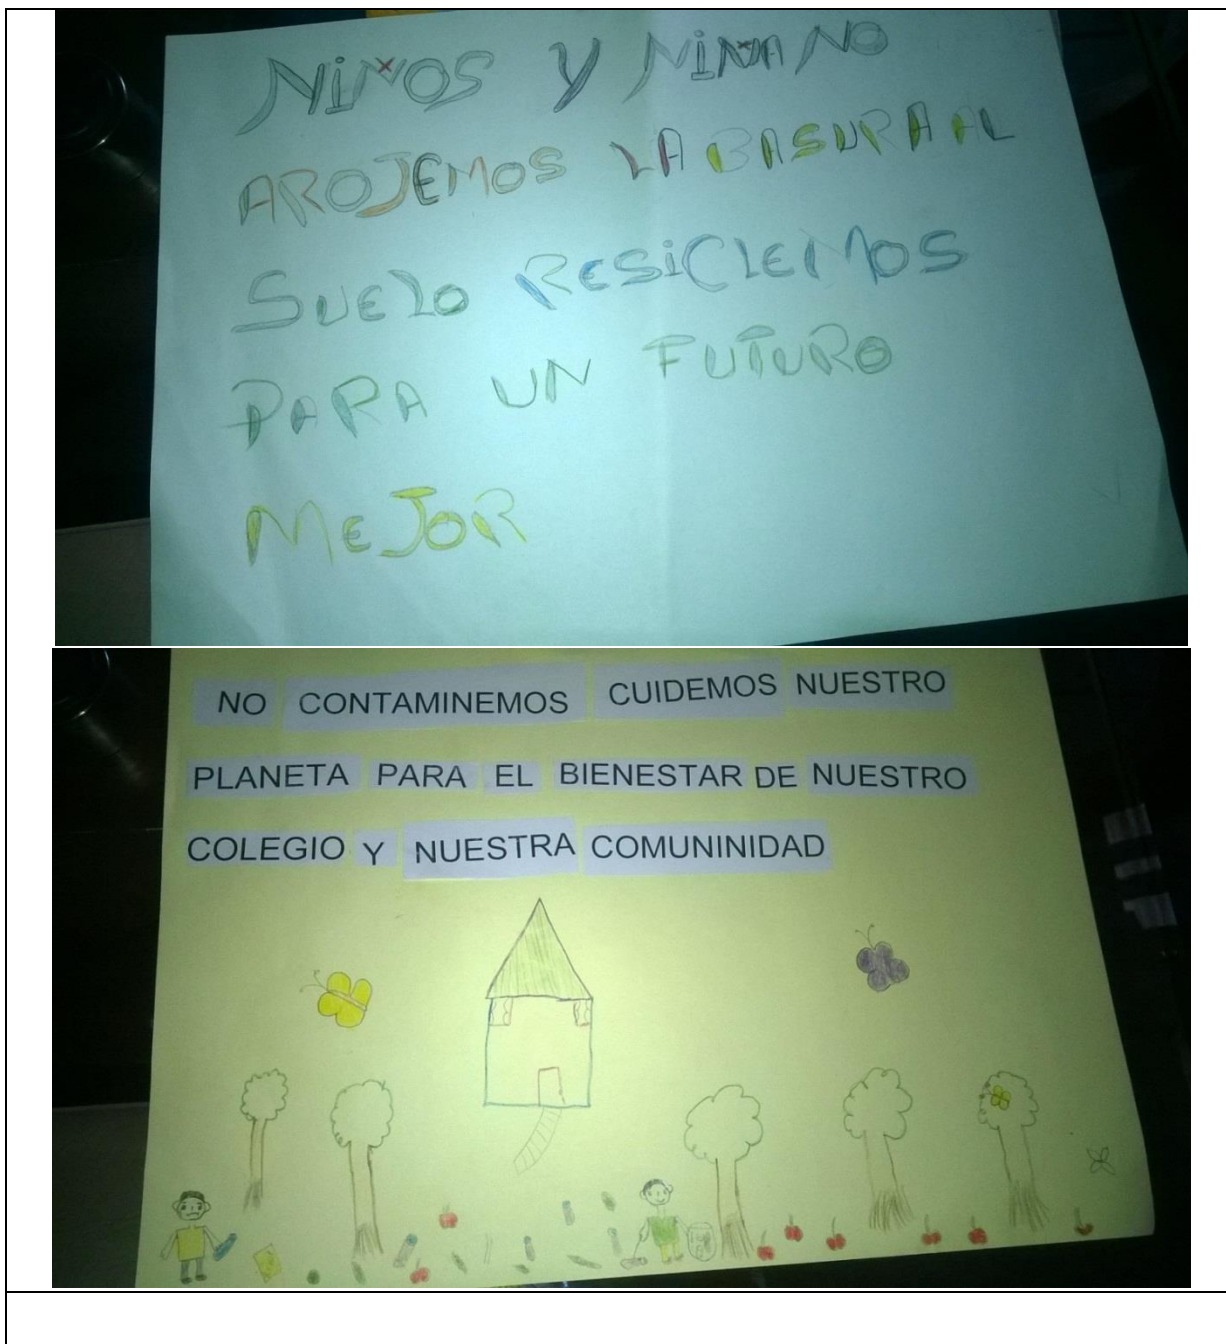 NIÑOS Y NIÑA NO
AROJEMOS LA BASURA AL
SUELO RESICLEMOS
PARA UN FUTURO
MEJOR
NO CONTAMINEMOS CUIDEMOS NUESTRO
PLANETA PARA EL BIENESTAR DE NUESTRO
COLEGIO Y NUESTRA COMUNINIDAD